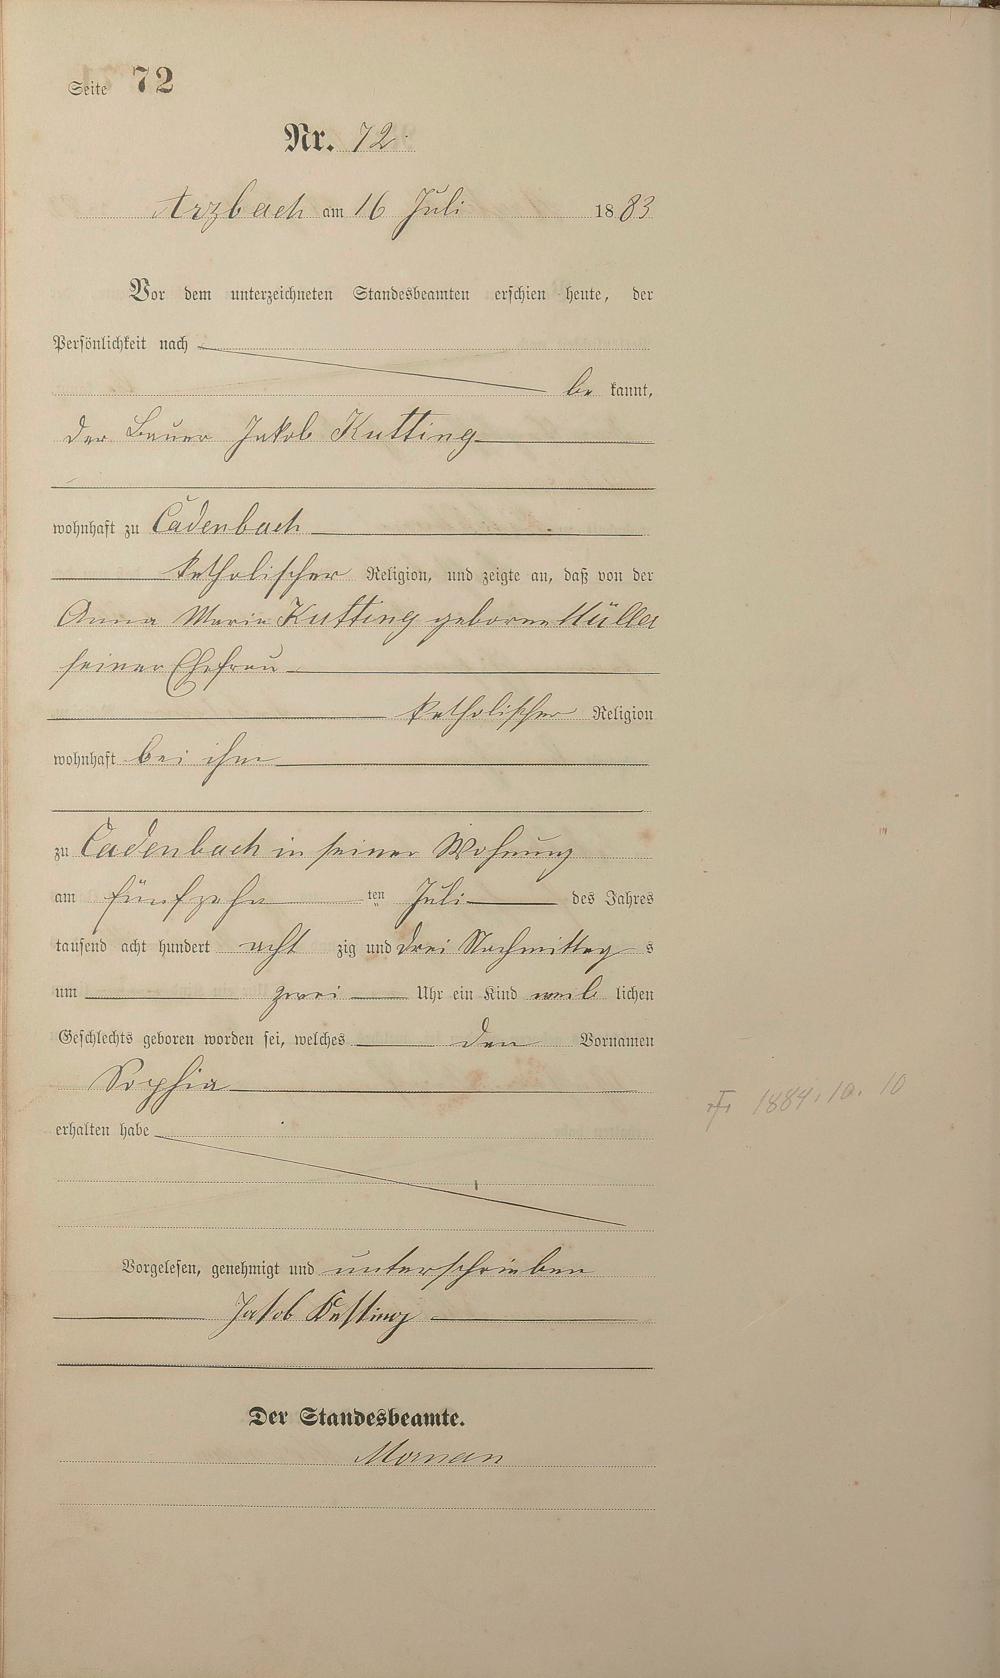 Seite 72
Nr. 72.
Arzbach am 16 Juli 1883
Vor dem unterzeichneten Standesbeamten erschien heute, der
Persönlichkeit nach
be kannt,
der Bauer Jakob Kutting
wohnhaft zu Cadenbach
katholischer Religion, und zeigte an, daß von der
Anna Maria Kutting geborne Müller
seiner Ehefrau
katholischer Religion
wohnhaft bei ihm
zu Cadenbach in seiner Wohnung
am fünfzehn ten Juli des Jahres
tausend acht hundert acht zig und drei Nachmittag s
um zwei Uhr ein Kind weib lichen
Geschlechts geboren worden sei, welches den Vornamen
Sophia
erhalten habe
Vorgelesen, genehmigt und unterschrieben
Jakob Kutting
Der Standesbeamte.
1884. 10. 10